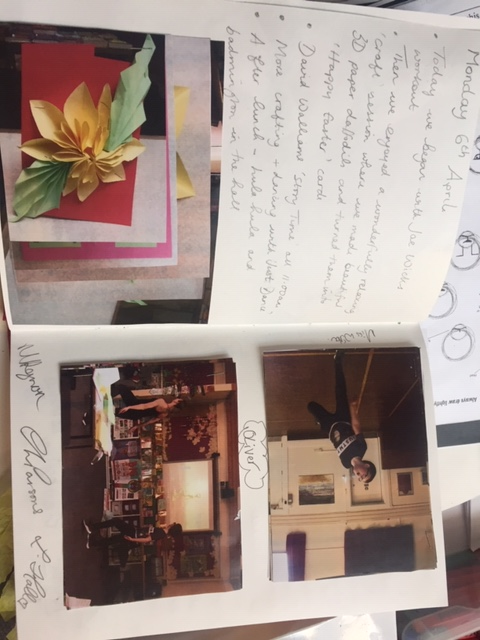 Monday 6th April
• Today we began with Joe Wicks
workout
• Then we enjoyed a wonderfully relaxing
'craft' session where we made beautiful
3D paper daffodils and turned them into
'Happy Easter' cards
• David Walliams 'Story Time' at 11:00am
• More crafting + dancing with 'Just Dance'
• After lunch - hula hula and
badminton in the hall
Oliver
Always draw lightly